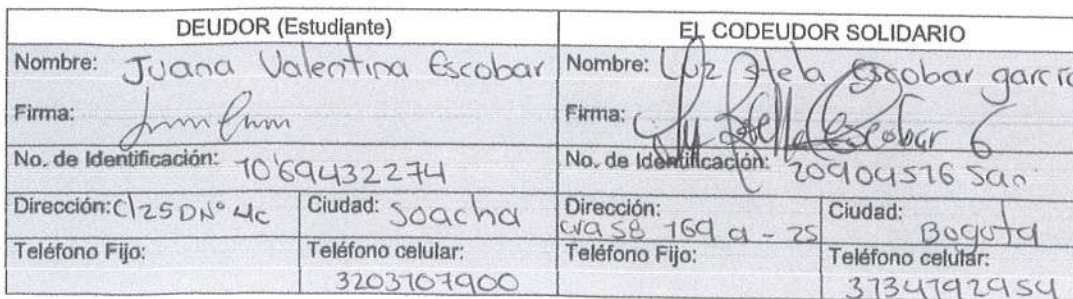 DEUDOR (Estudiante)
EL CODEUDOR SOLIDARIO
Nombre: Juana Valentina Escobar
Nombre: Luz Stela Escobar garcía
Firma:
Firma: Luz Stella Escobar G
No. de Identificación: 1069432274
No. de Identificación: 20904516 San
Dirección: Cl 25 D N° 4c
Ciudad: Soacha
Dirección: cra 58 169 a - 25
Ciudad: Bogotá
Teléfono Fijo:
Teléfono celular: 3203707900
Teléfono Fijo:
Teléfono celular: 3134792954